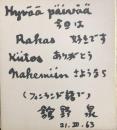 Hyvää päivää
今日は
Rakas 好きです
Kiitos ありがとう
Nähemiin さようなら
(フィンランド語で)
舘野 泉
21. VII. 63